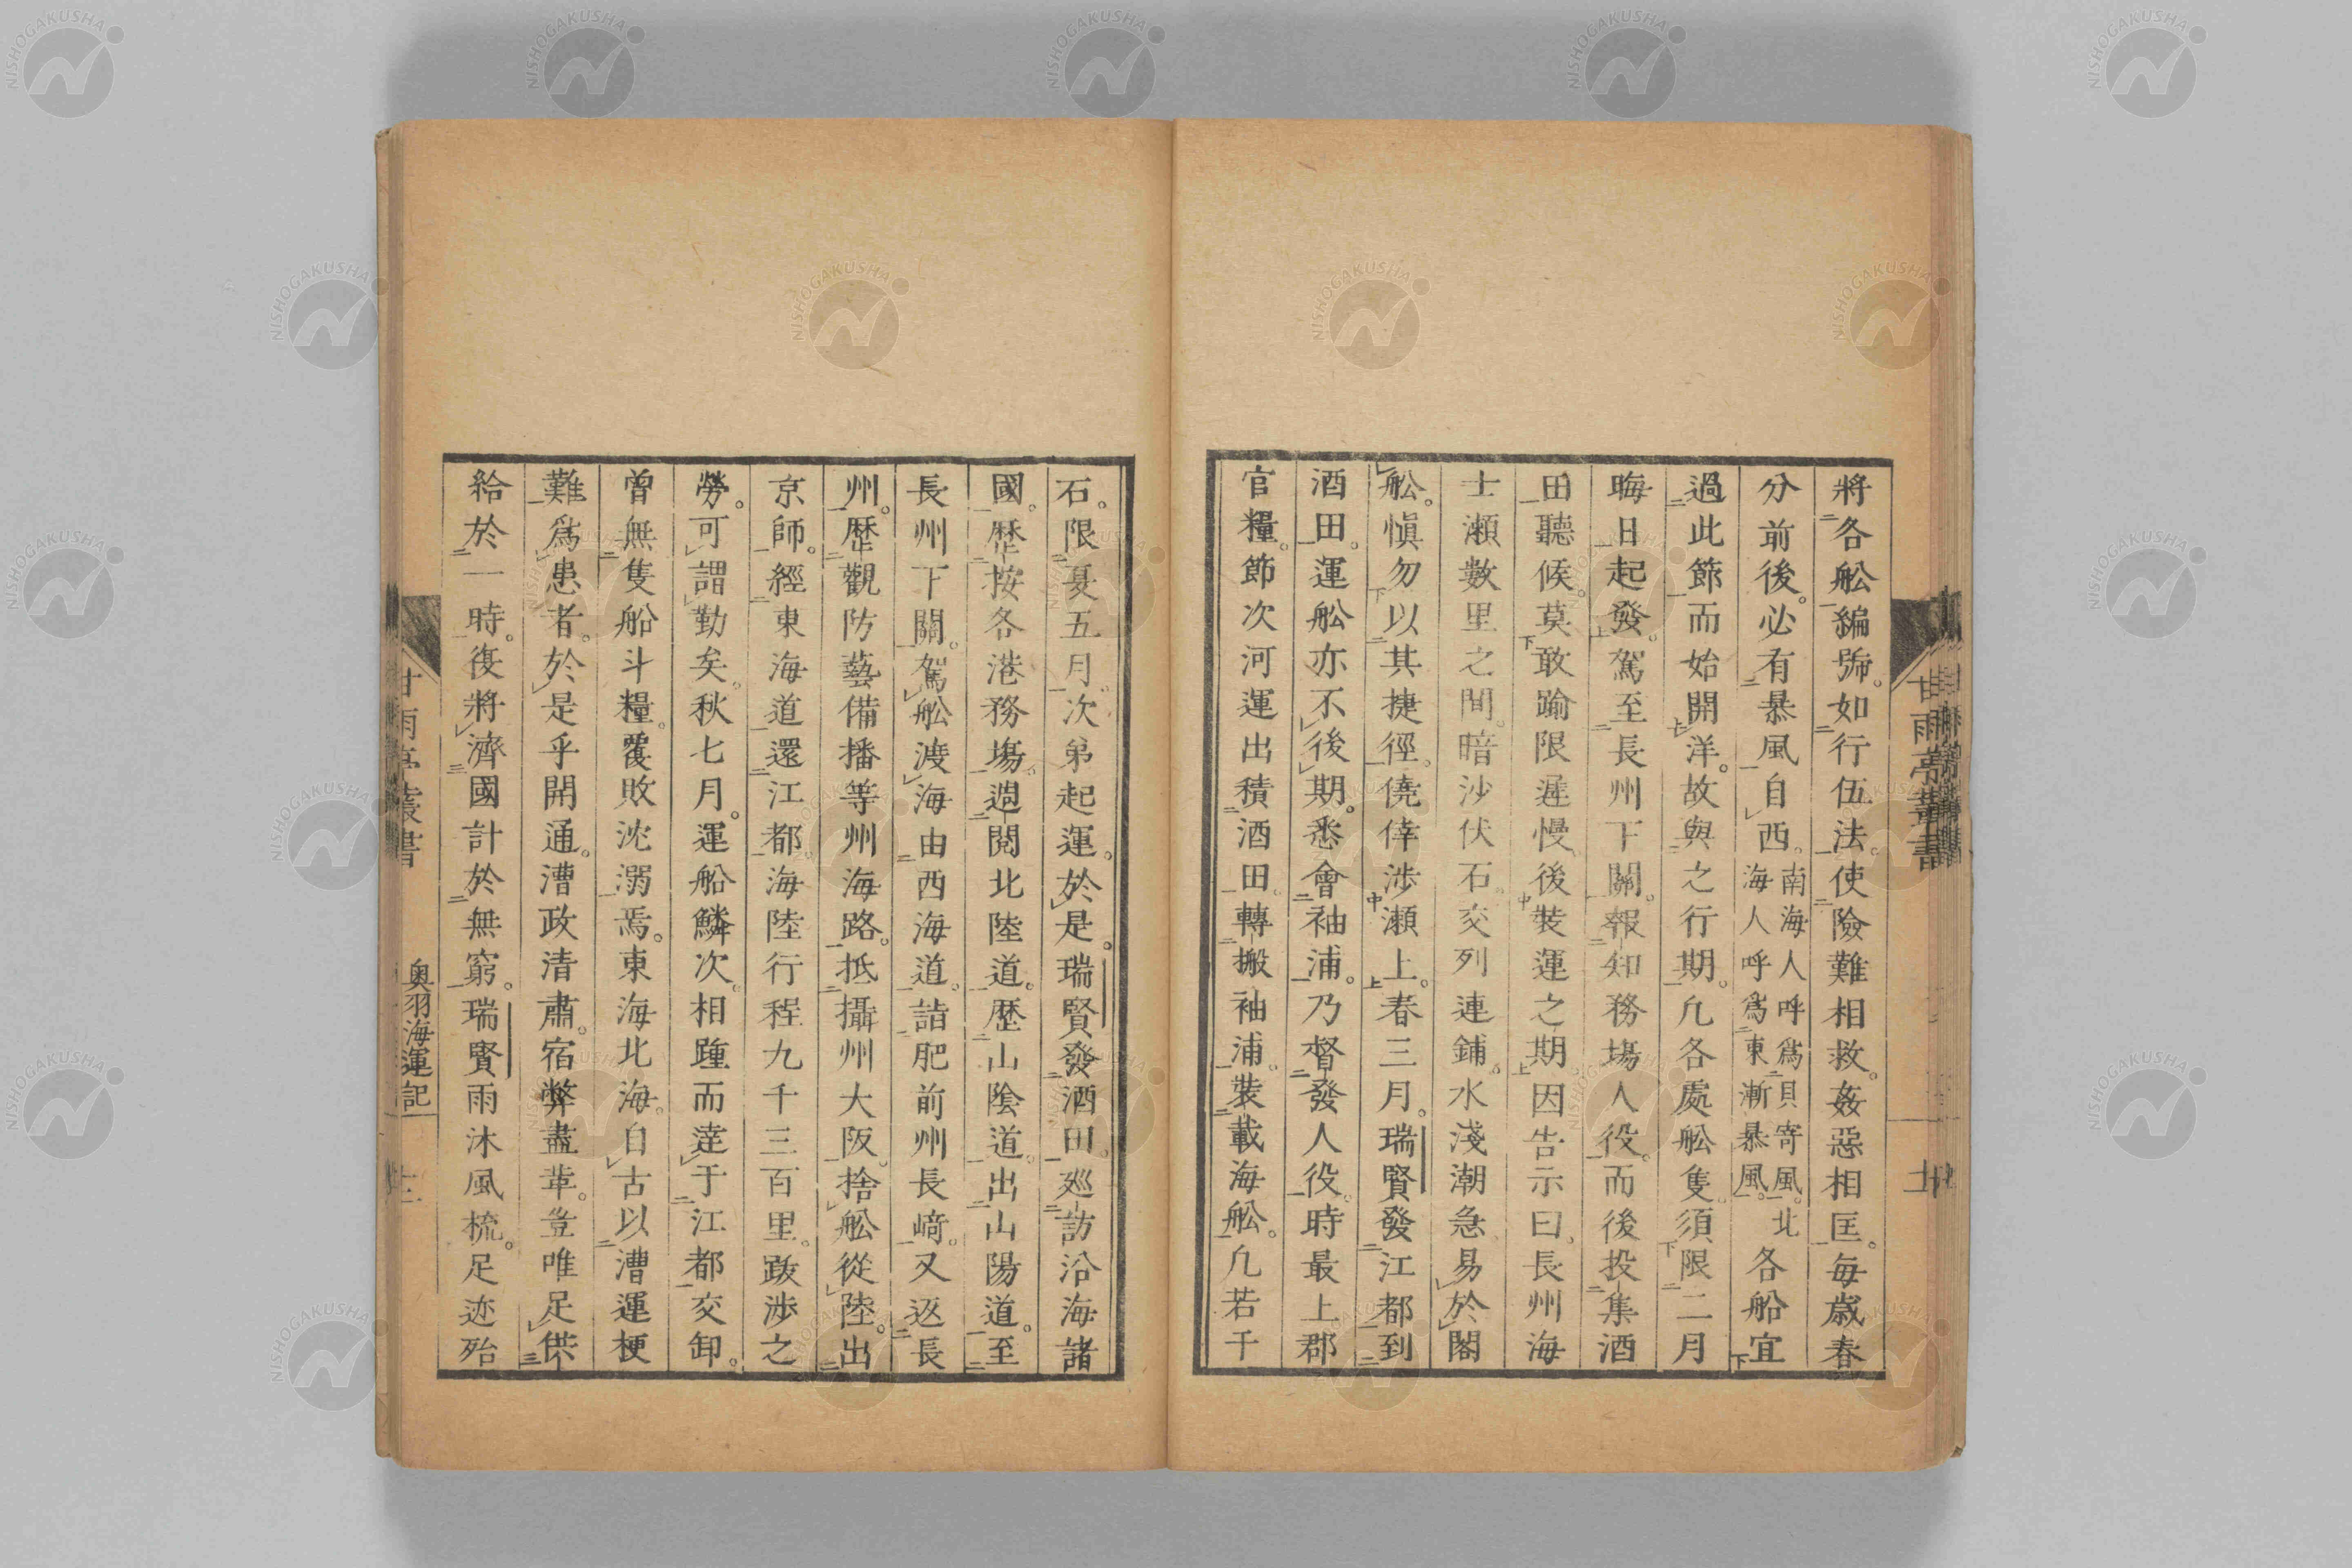 將各舩編號。如行伍法。使險難相救。姦惡相匡。毎歳春
分前後。必有暴風自西。南海人呼爲貝寄風。北海人呼爲東漸暴風。各船宜
過此節而始開洋。故與之行期。凢各處舩隻。須限二月
晦日起發。駕至長州下關。報知務塲人役。而後投集酒
田聽候。莫敢踰限遲慢後裝運之期。因告示曰。長州海
士瀬數里之間。暗沙伏石。交列連鋪。水淺潮急。易於閣
舩。愼勿以其捷徑。僥倖渉瀬上。春三月。瑞賢發江都到
酒田。運舩亦不後期。悉會袖浦。乃督發人役。時最上郡
官糧。節次河運出積酒田。轉搬袖浦。裝載海舩。凢若干
石。限夏五月。次弟起運。於是。瑞賢發酒田。廵訪沿海諸
國。歴按各港務塲。週閲北陸道。歴山陰道。出山陽道。至
長州下關。駕舩渡海由西海道。詣肥前州長﨑。又返長
州。歴觀防藝備播等州海路。抵攝州大阪。捨舩從陸。出
京師。經東海道。還江都。海陸行程九千三百里。跋渉之
勞。可謂勤矣。秋七月。運船鱗次。相踵而達于江都交卸。
曾無隻船斗糧。覆敗沈溺焉。東海北海。自古以漕運梗
難爲患者。於是乎開通。漕政清肅。宿弊盡革。豈唯足供
給於一時。復將濟國計於無窮。瑞賢雨沐風梳。足迹殆
甘雨亭叢書
奥羽海運記
甘雨亭叢書